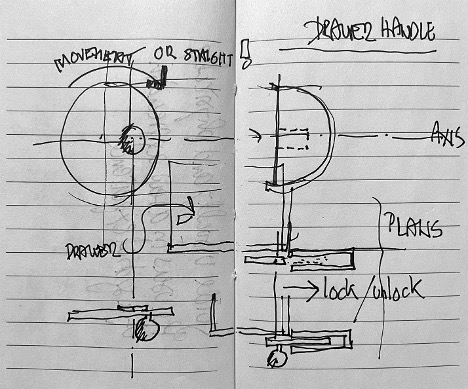 DRAWER HANDLE
MOVEMENT OR STRAIGHT
AXIS
DRAWER
PLANS
→ lock/unlock